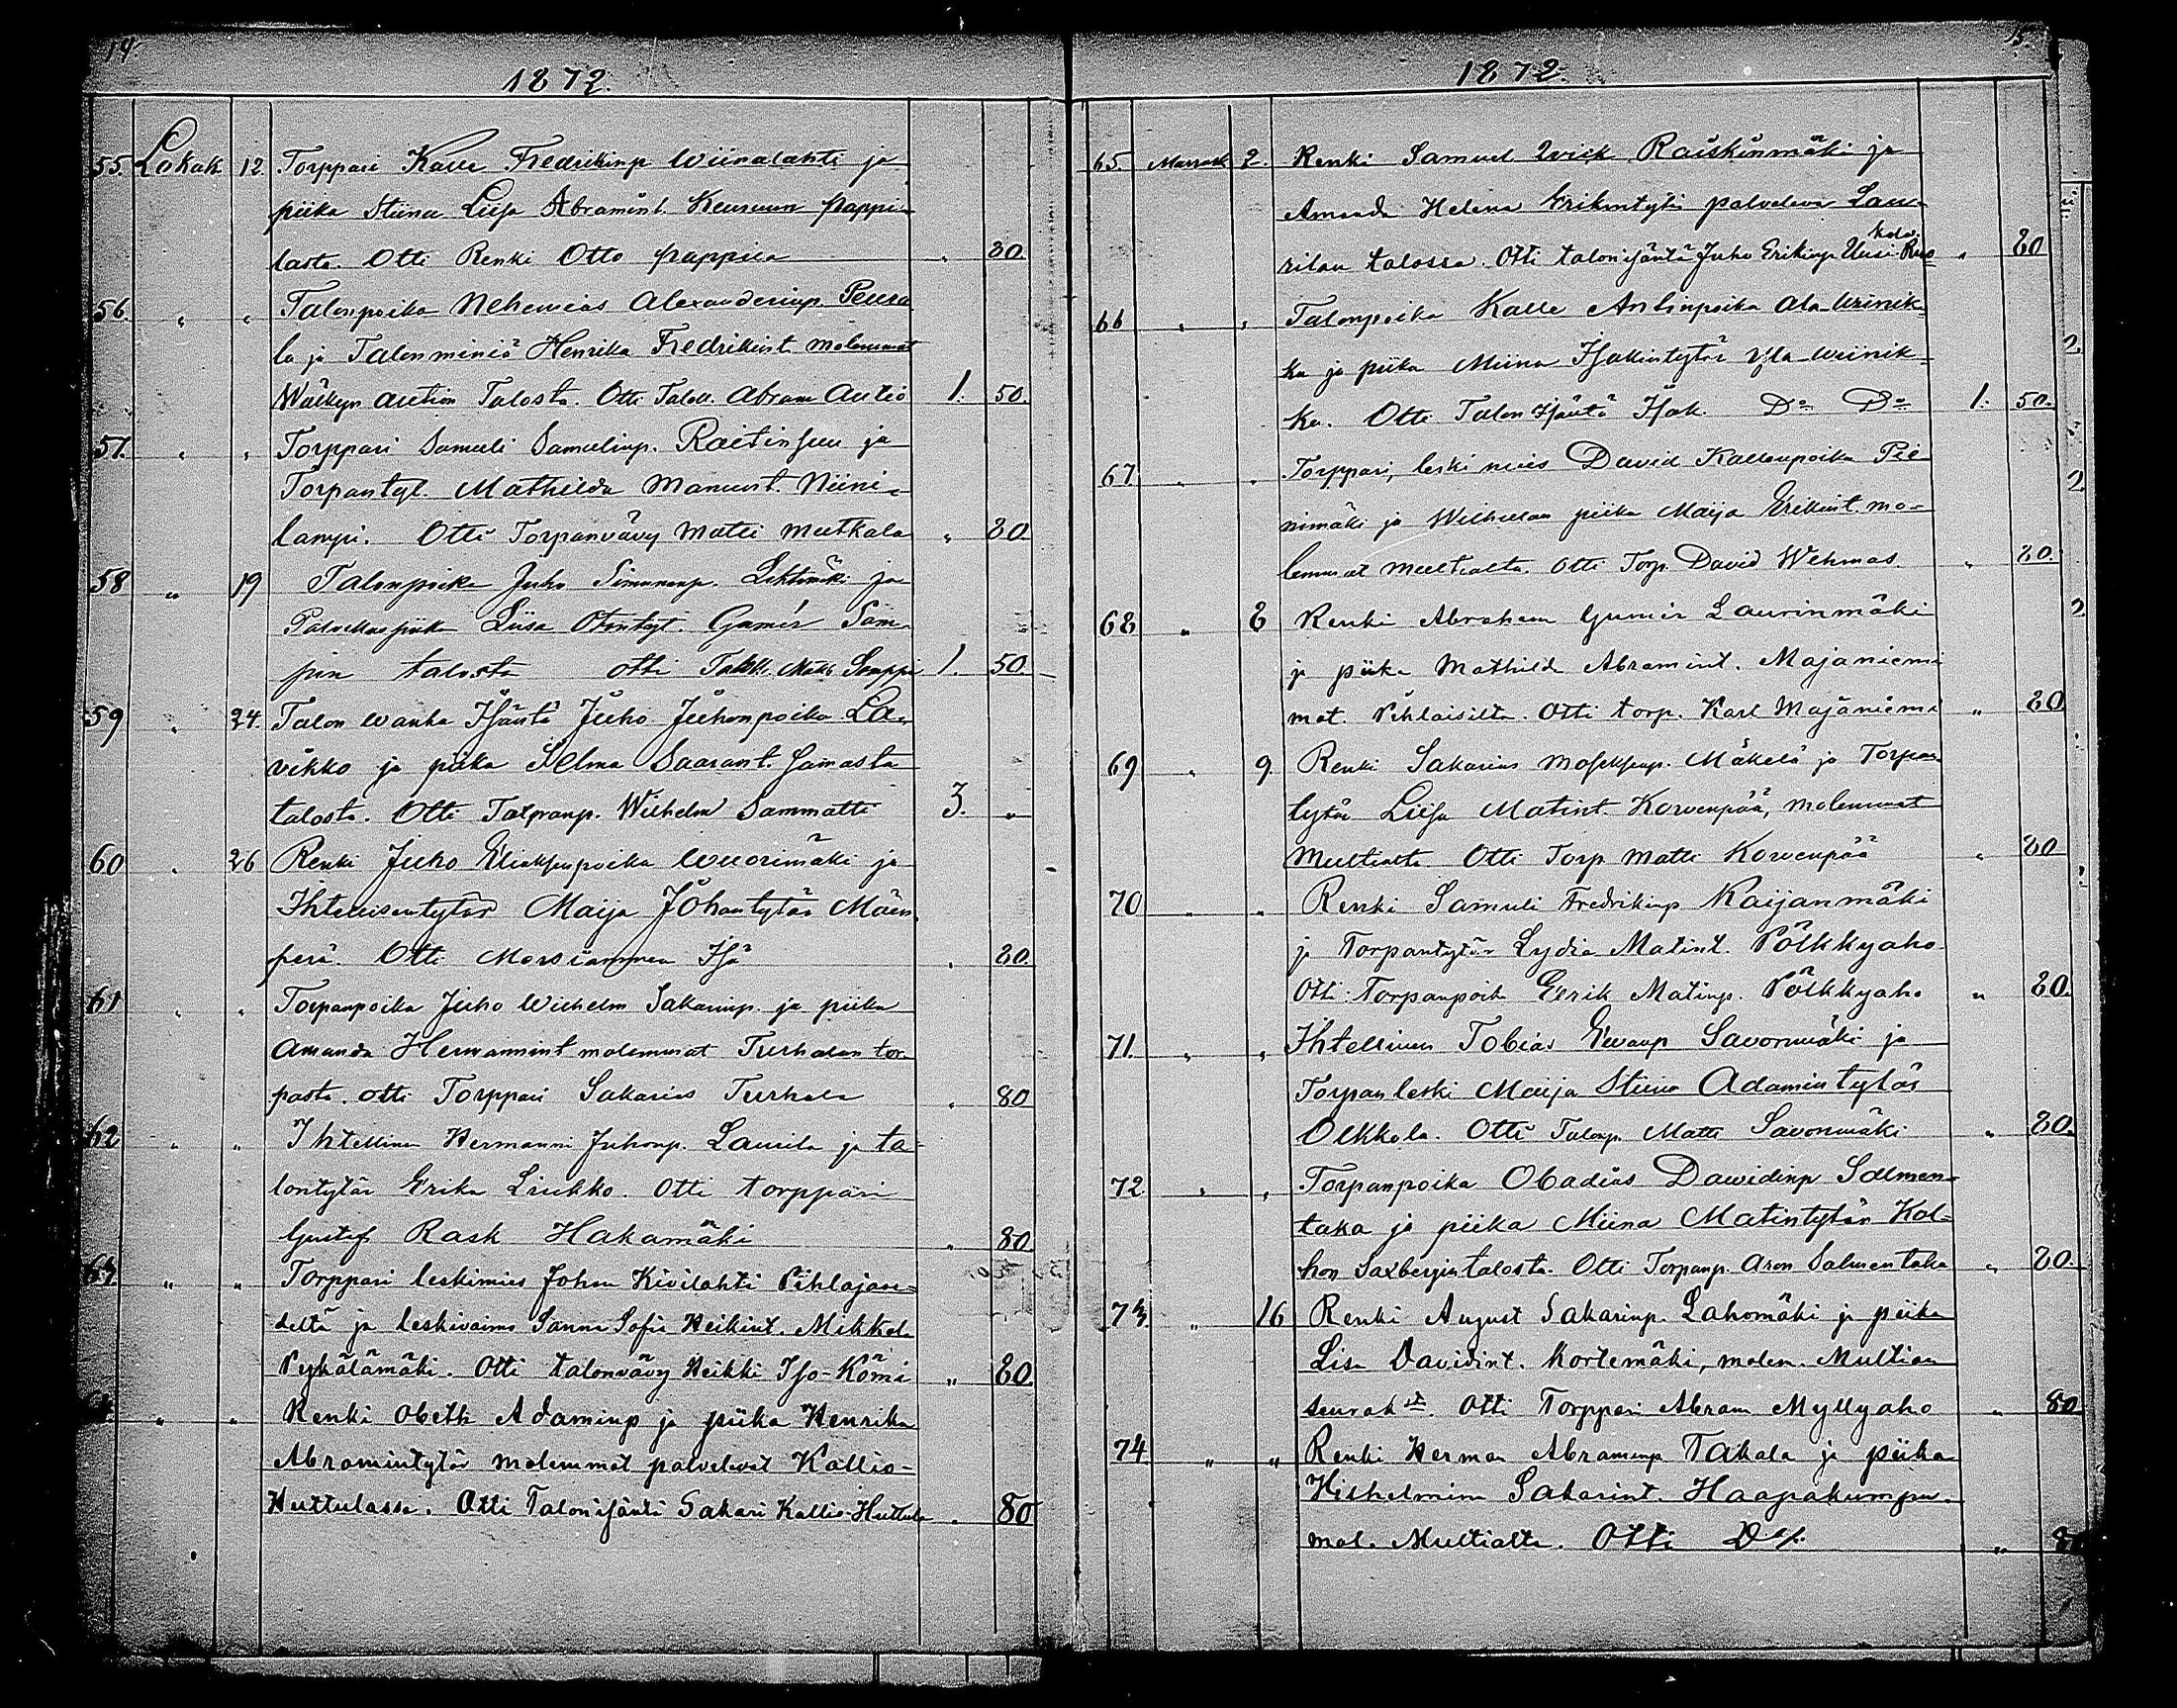 14.
1872.
55. Lokak 12. Torppari Kalle Fredrikinp Wiinalahti ja
piika Stiina Liisa Abramint. Keuruun pappi-
lasta. Otti Renki Otto pappila „ 80
56. „ „ Talonpoika Nehemias Alexanderinp. Peura
la ja Talonminiä Henrika Fredrikint. molemmat
Wäkyn Aution Talosta. Otti Talon. Abram Autio 1. 50.
57. „ „ Torppari Samuli Samulinp. Raitinsuu ja
Torpantyt. Mathilda Manuust. Niini-
lampi. Otti Torpanvävy Matti Mutkala „ 80
58 „ 19 Talonpoika Juho Simunanp. Lehtomäki ja
Palvelluspiika Liisa Otontyt. Gumér Säm-
pin talosta otti Talll. Matti Sämppi 1. 50.
59 „ 24. Talon wanha Isäntä Juho Juhonpoika La-
vikko ja piika Selma Saarant. samasta
talosta. Otti Talpranp. Wilhelm Sammatti 3. „
60 „ 26 Renki Juho Eliaksenpoika Wuorimäki ja
Ihtellisentytär Maija Johantytär Mäen
perä. Otti Morsiammen Isä „ 80
61 „ „ Torpanpoika Juho Wilhelm Sakarinp. ja piika
Amanda Hermannint molemmat Turhalan tor-
pasta. otti Torppari Sakarias Turhala „ 80
62 „ „ Ihtellinen Hermanni Juhonp. Laurila ja ta-
lontytär Erika Liukko. Otti torppari
Gustaf Rask Hakamäki „ 80
63. „ „ Torppari leskimies Johan Kivilahti Pihlajave-
deltä ja leskivaimo Sanna Sofia Heikint. Mikkola
Pyhälämäki. Otti talonvävy Heikki Iso-Kömi „ 80
64. „ „ Renki Obeth Adaminp ja piika Henrika
Abramintytär molemmat palvelevat Kallio-
Huttulassa. Otti Talonisäntä Sakari Kallio-Huttula „ 80
15.
1872.
65. Marrask 2. Renki Samuel Qvick Raiskinmäki ja
Amanda Helena Erikintytär palveleva Lau-
rilan talossa. Otti talonisäntä Juho Erikinp Uusi-Ruo
kola. „ 80
66 „ „ Talonpoika Kalle Antinpoika Ala-Wiinik-
ka ja piika Miina Isakintytär Yla-Wiinik-
ka. Otti Talon Isäntä Isak. Do Do 1. 50.
67 „ „ Torppari, leski mies David Kallenpoika Pie
nimäki ja Wilhullan piika Maija Erikint. mo-
lemmat Multialta. Otti Torp. David Wehmas. „ 80.
68 „ 8 Renki Abraham Gumér Laurinmäki
ja piika Mathilda Abramint. Majaniemi
mol. Pihlaisilta. Otti torp. Karl Majaniemi „ 80
69 „ 9. Renki Sakarias Moseksenp. Mäkelä ja Torpan
tytär Liisa Matint. Korvenpää, molemmat
Multialta. Otti Torp. Matti Korvenpää „ 80
70 „ „ Renki Samuli Fredrikinp Kaijanmäki
ja Torpantytär Lydia Matint. Pölkkyaho
Otti Torpanpoik Eerik Matinp. Pölkkyaho „ 80.
71. „ „ Ihtellinen Tobias Eevanp Savonmäki ja
Torpan leski Maija Stiina Adamintytär
Olkkola. Otti Talonp. Matti Savonmäki „ 80.
72. „ „ Torpanpoika Obadias Dawidinp Salmen-
taka ja piika Miina Matintytär Kol-
hon Saxbergin talosta. Otti Torpanp. Aron Salmentaka „ 80.
73. „ 16 Renki August Sakarinp. Lahomäki ja piika
Lisa Davidint. Kortemäki, molem. Multian
seurak st. Otti Torppari Abram Myllyaho „ 80
74 „ „ Renki Herman Abraminp Takala ja piika
Wilhelmina Sakarint. Haapakumpu.
mol. Multialta. Otti Do. „ 80